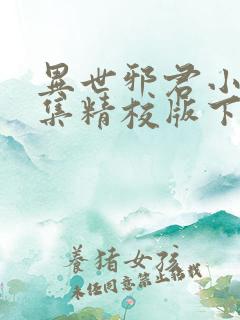 異世邪君小
集精校版下
养猪女孩
未经同意禁止转载